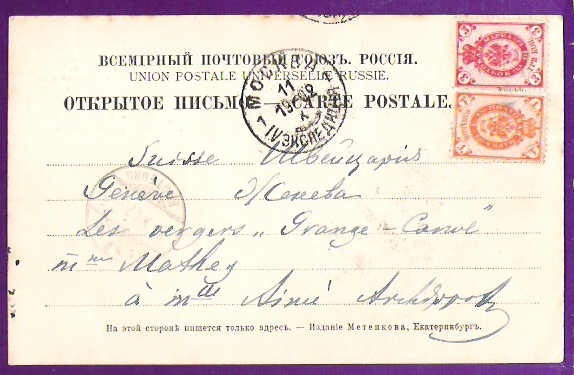 ВСЕМІРНЫЙ ПОЧТОВЫЙ СОЮЗЪ. РОССІЯ.
UNION POSTALE UNIVERSELLE RUSSIE.
ОТКРЫТОЕ ПИСЬМО CARTE POSTALE.
МОСКВА
11
1902
1
IV ЭКСПЕДИЦІЯ
3
3
1
1
Suisse Швейцарія
Genève Женева
Les vergers „Grange-
Mme Mathey
à Mlle Aimée
На этой сторонѣ пишется только адресъ. — Изданіе Метенкова, Екатеринбургъ.